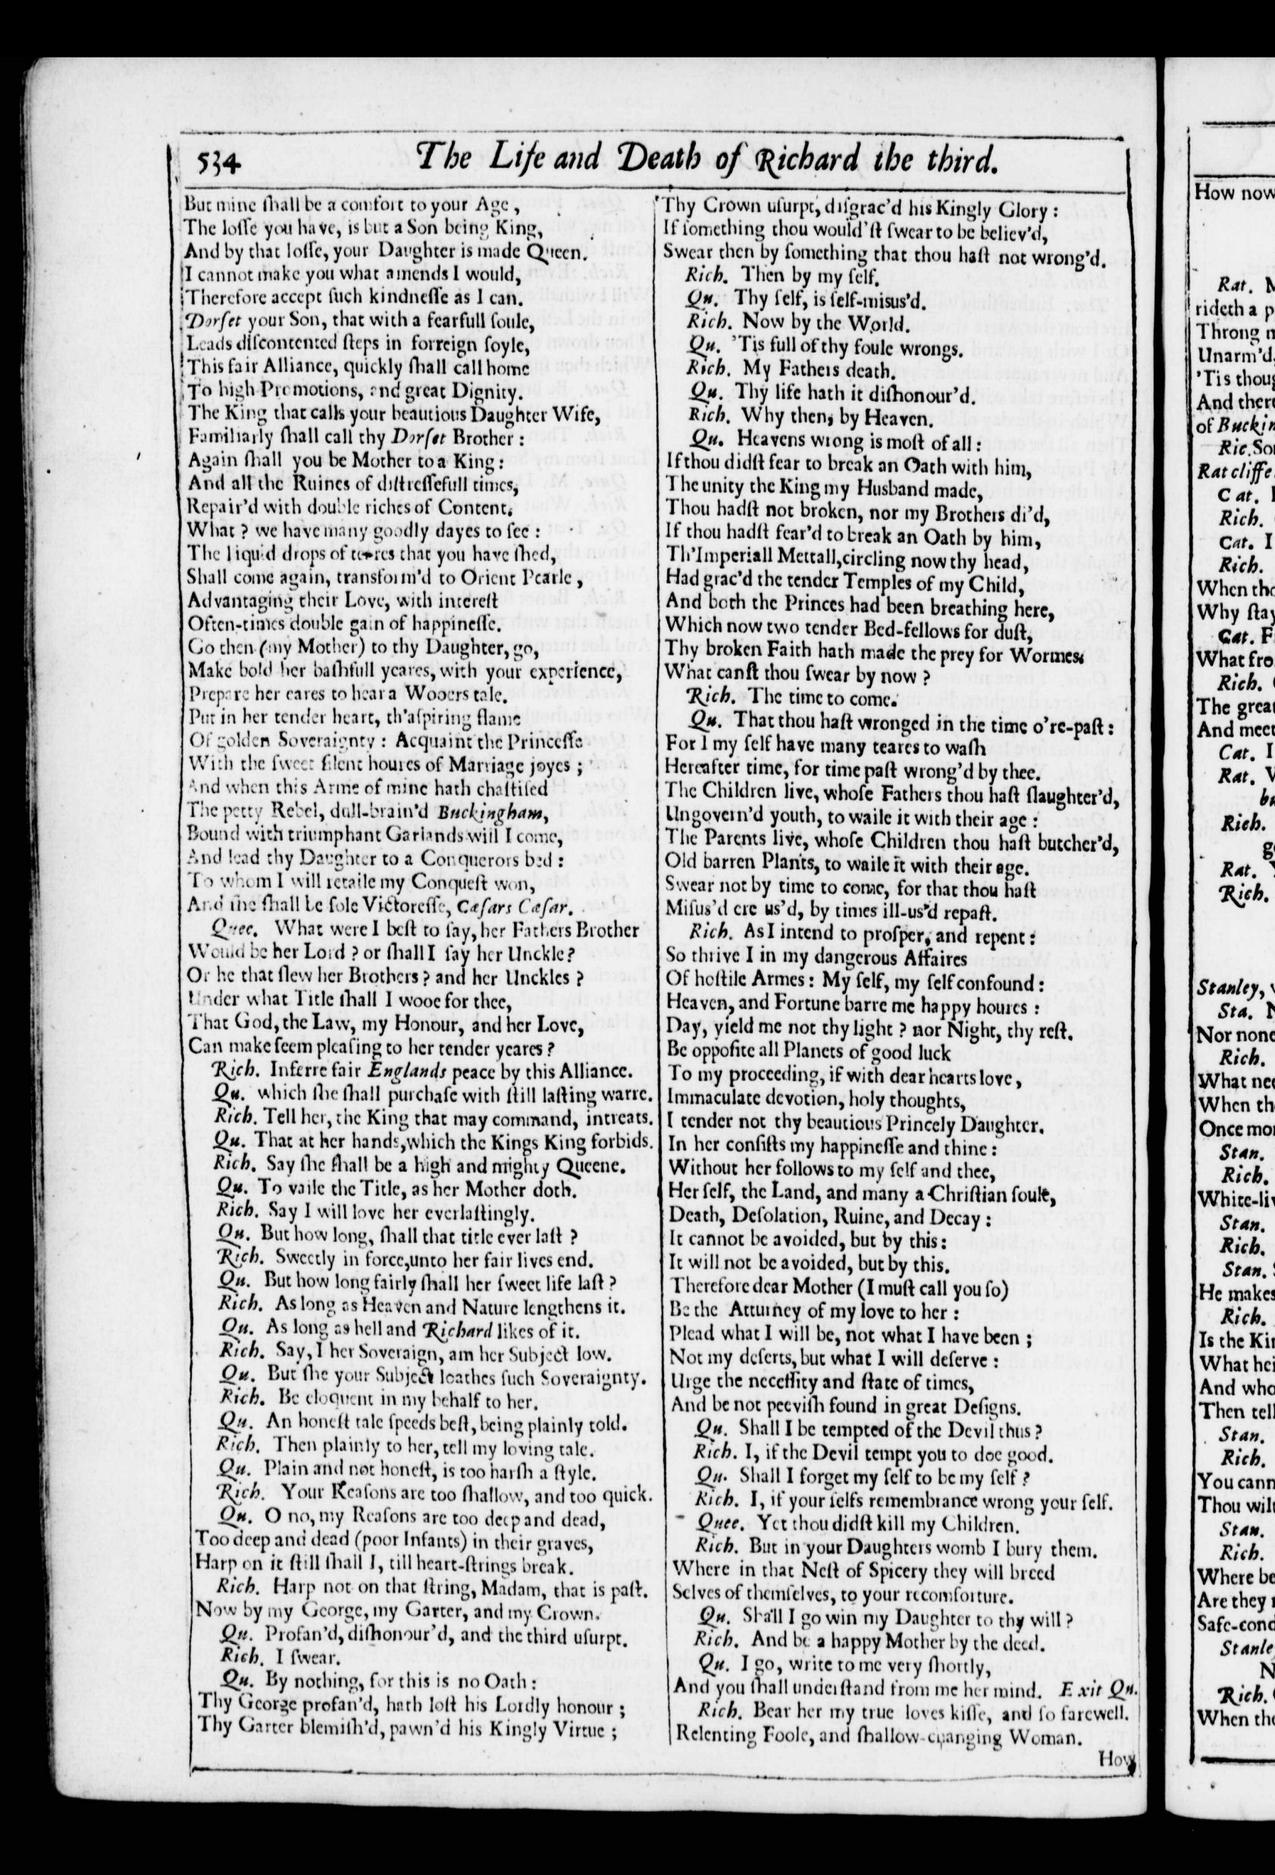 534
The Life and Death of Richard the third.
But mine ſhall be a comfort to your Age,
The loſſe you have, is but a Son being King,
And by that loſſe, your Daughter is made Queen.
I cannot make you what amends I would,
Therefore accept ſuch kindneſſe as I can.
Dorſet your Son, that with a fearfull ſoule,
Leads diſcontented ſteps in forreign ſoyle,
This fair Alliance, quickly ſhall call home
To high Promotions, and great Dignity.
The King that calls your beautious Daughter Wife,
Familiarly ſhall call thy Dorſet Brother:
Again ſhall you be Mother to a King:
And all the Ruines of diſtreſſefull times,
Repair'd with double riches of Content.
What? we have many goodly dayes to ſee:
The liquid drops of teares that you have ſhed,
Shall come again, transform'd to Orient Pearle,
Advantaging their Love, with intereſt
Often-times double gain of happineſſe.
Go then (my Mother) to thy Daughter, go,
Make bold her baſhfull yeares, with your experience,
Prepare her eares to hear a Wooers tale,
Put in her tender heart, th'aſpiring flame
Of golden Soveraignty: Acquaint the Princeſſe
With the ſweet ſilent houres of Marriage joyes;
And when this Arme of mine hath chaſtiſed
The petty Rebel, dull-brain'd Buckingham,
Bound with triumphant Garlands will I come,
And lead thy Daughter to a Conquerors bed:
To whom I will retaile my Conqueſt won,
And ſhe ſhall be ſole Victoreſſe, Cæſars Cæſar.
Quee. What were I beſt to ſay, her Fathers Brother
Would be her Lord? or ſhall I ſay her Unckle?
Or he that ſlew her Brothers? and her Unckles?
Under what Title ſhall I wooe for thee,
That God, the Law, my Honour, and her Love,
Can make ſeem pleaſing to her tender yeares?
Rich. Inferre fair Englands peace by this Alliance.
Qu. which ſhe ſhall purchaſe with ſtill laſting warre.
Rich. Tell her, the King that may command, intreats.
Qu. That at her hands, which the Kings King forbids.
Rich. Say ſhe ſhall be a high and mighty Queene.
Qu. To vaile the Title, as her Mother doth.
Rich. Say I will love her everlaſtingly.
Qu. But how long, ſhall that title ever laſt?
Rich. Sweetly in force, unto her fair lives end.
Qu. But how long fairly ſhall her ſweet life laſt?
Rich. As long as Heaven and Nature lengthens it.
Qu. As long as hell and Richard likes of it.
Rich. Say, I her Soveraign, am her Subject low.
Qu. But ſhe your Subject loathes ſuch Soveraignty.
Rich. Be eloquent in my behalf to her.
Qu. An honeſt tale ſpeeds beſt, being plainly told.
Rich. Then plainly to her, tell my loving tale.
Qu. Plain and not honeſt, is too harſh a ſtyle.
Rich. Your Reaſons are too ſhallow, and too quick.
Qu. O no, my Reaſons are too deep and dead,
Too deep and dead (poor Infants) in their graves,
Harp on it ſtill ſhall I, till heart-ſtrings break.
Rich. Harp not on that ſtring, Madam, that is paſt.
Now by my George, my Garter, and my Crown.
Qu. Profan'd, diſhonour'd, and the third uſurpt.
Rich. I ſwear.
Qu. By nothing, for this is no Oath:
Thy George profan'd, hath loſt his Lordly honour;
Thy Garter blemiſh'd, pawn'd his Kingly Virtue;
Thy Crown uſurpt, diſgrac'd his Kingly Glory:
If ſomething thou would'ſt ſwear to be believ'd,
Swear then by ſomething that thou haſt not wrong'd.
Rich. Then by my ſelf.
Qu. Thy ſelf, is ſelf-misus'd.
Rich. Now by the World.
Qu. 'Tis full of thy foule wrongs.
Rich. My Fathers death.
Qu. Thy life hath it diſhonour'd.
Rich. Why then, by Heaven.
Qu. Heavens wrong is moſt of all:
If thou didſt fear to break an Oath with him,
The unity the King my Husband made,
Thou hadſt not broken, nor my Brothers di'd,
If thou hadſt fear'd to break an Oath by him,
Th'Imperiall Mettall, circling now thy head,
Had grac'd the tender Temples of my Child,
And both the Princes had been breathing here,
Which now two tender Bed-fellows for duſt,
Thy broken Faith hath made the prey for Wormes.
What canſt thou ſwear by now?
Rich. The time to come.
Qu. That thou haſt wronged in the time o're-paſt:
For I my ſelf have many teares to waſh
Hereafter time, for time paſt wrong'd by thee.
The Children live, whoſe Fathers thou haſt ſlaughter'd,
Ungovern'd youth, to waile it with their age:
The Parents live, whoſe Children thou haſt butcher'd,
Old barren Plants, to waile it with their age.
Swear not by time to come, for that thou haſt
Miſus'd ere us'd, by times ill-us'd repaſt.
Rich. As I intend to proſper, and repent:
So thrive I in my dangerous Affaires
Of hoſtile Armes: My ſelf, my ſelf confound:
Heaven, and Fortune barre me happy houres:
Day, yield me not thy light? nor Night, thy reſt.
Be oppoſite all Planets of good luck
To my proceeding, if with dear hearts love,
Immaculate devotion, holy thoughts,
I tender not thy beautious Princely Daughter.
In her conſiſts my happineſſe and thine:
Without her follows to my ſelf and thee,
Her ſelf, the Land, and many a Chriſtian ſoule,
Death, Deſolation, Ruine, and Decay:
It cannot be avoided, but by this:
It will not be avoided, but by this.
Therefore dear Mother (I muſt call you ſo)
Be the Atturney of my love to her:
Plead what I will be, not what I have been;
Not my deſerts, but what I will deſerve:
Urge the neceſſity and ſtate of times,
And be not peeviſh found in great Deſigns.
Qu. Shall I be tempted of the Devil thus?
Rich. I, if the Devil tempt you to doe good.
Qu. Shall I forget my ſelf to be my ſelf?
Rich. I, if your ſelfs remembrance wrong your ſelf.
Quee. Yet thou didſt kill my Children.
Rich. But in your Daughters womb I bury them.
Where in that Neſt of Spicery they will breed
Selves of themſelves, to your recomforture.
Qu. Shall I go win my Daughter to thy will?
Rich. And be a happy Mother by the deed.
Qu. I go, write to me very ſhortly,
And you ſhall underſtand from me her mind. Exit Qu.
Rich. Bear her my true loves kiſſe, and ſo farewell.
Relenting Foole, and ſhallow-changing Woman.
How
How now
Rat.
rideth a
Throng
Unarm'd
'Tis
And
of
Ric.
Ratcliffe
Cat.
Rich.
Cat. I
Rich.
When
Why
Cat.
What
Rich.
The
And meet
Cat. I
Rat.
Rich.
Rat.
Rich.
Stanley,
Sta.
Nor none
Rich.
What
When
Once
Stan.
Rich.
Stan.
Rich.
Stan.
He makes
Rich.
Is the
What
And
Then tell
Stan.
Rich.
You
Thou
Stan.
Rich.
Where
Are they
Stanle
Rich.
When